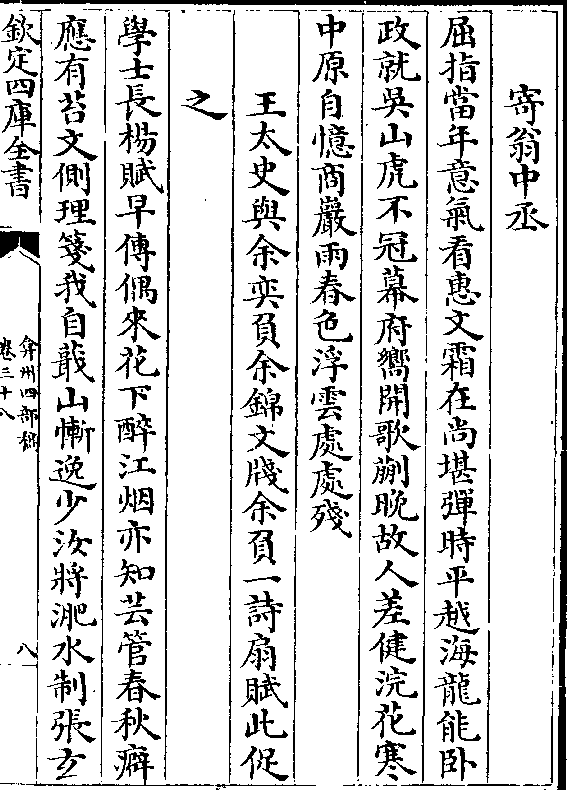 寄翁中丞
屈指當年意氣看惠文霜在尚堪彈時平越海龍能卧
政就吳山虎不冠幕府嚮開歌蒯晚故人差健浣花寒
中原自憶商巖雨春色浮雲處處殘
王太史與余奕負余錦文牋余負一詩扇賦此促
之
學士長楊賦早傳偶來花下醉江烟亦知芸管春秋癖
應有苔文側理箋我自蕺山慚逸少汝將淝水制張玄
欽定四庫全書
弇州四部稿
卷三十八
八